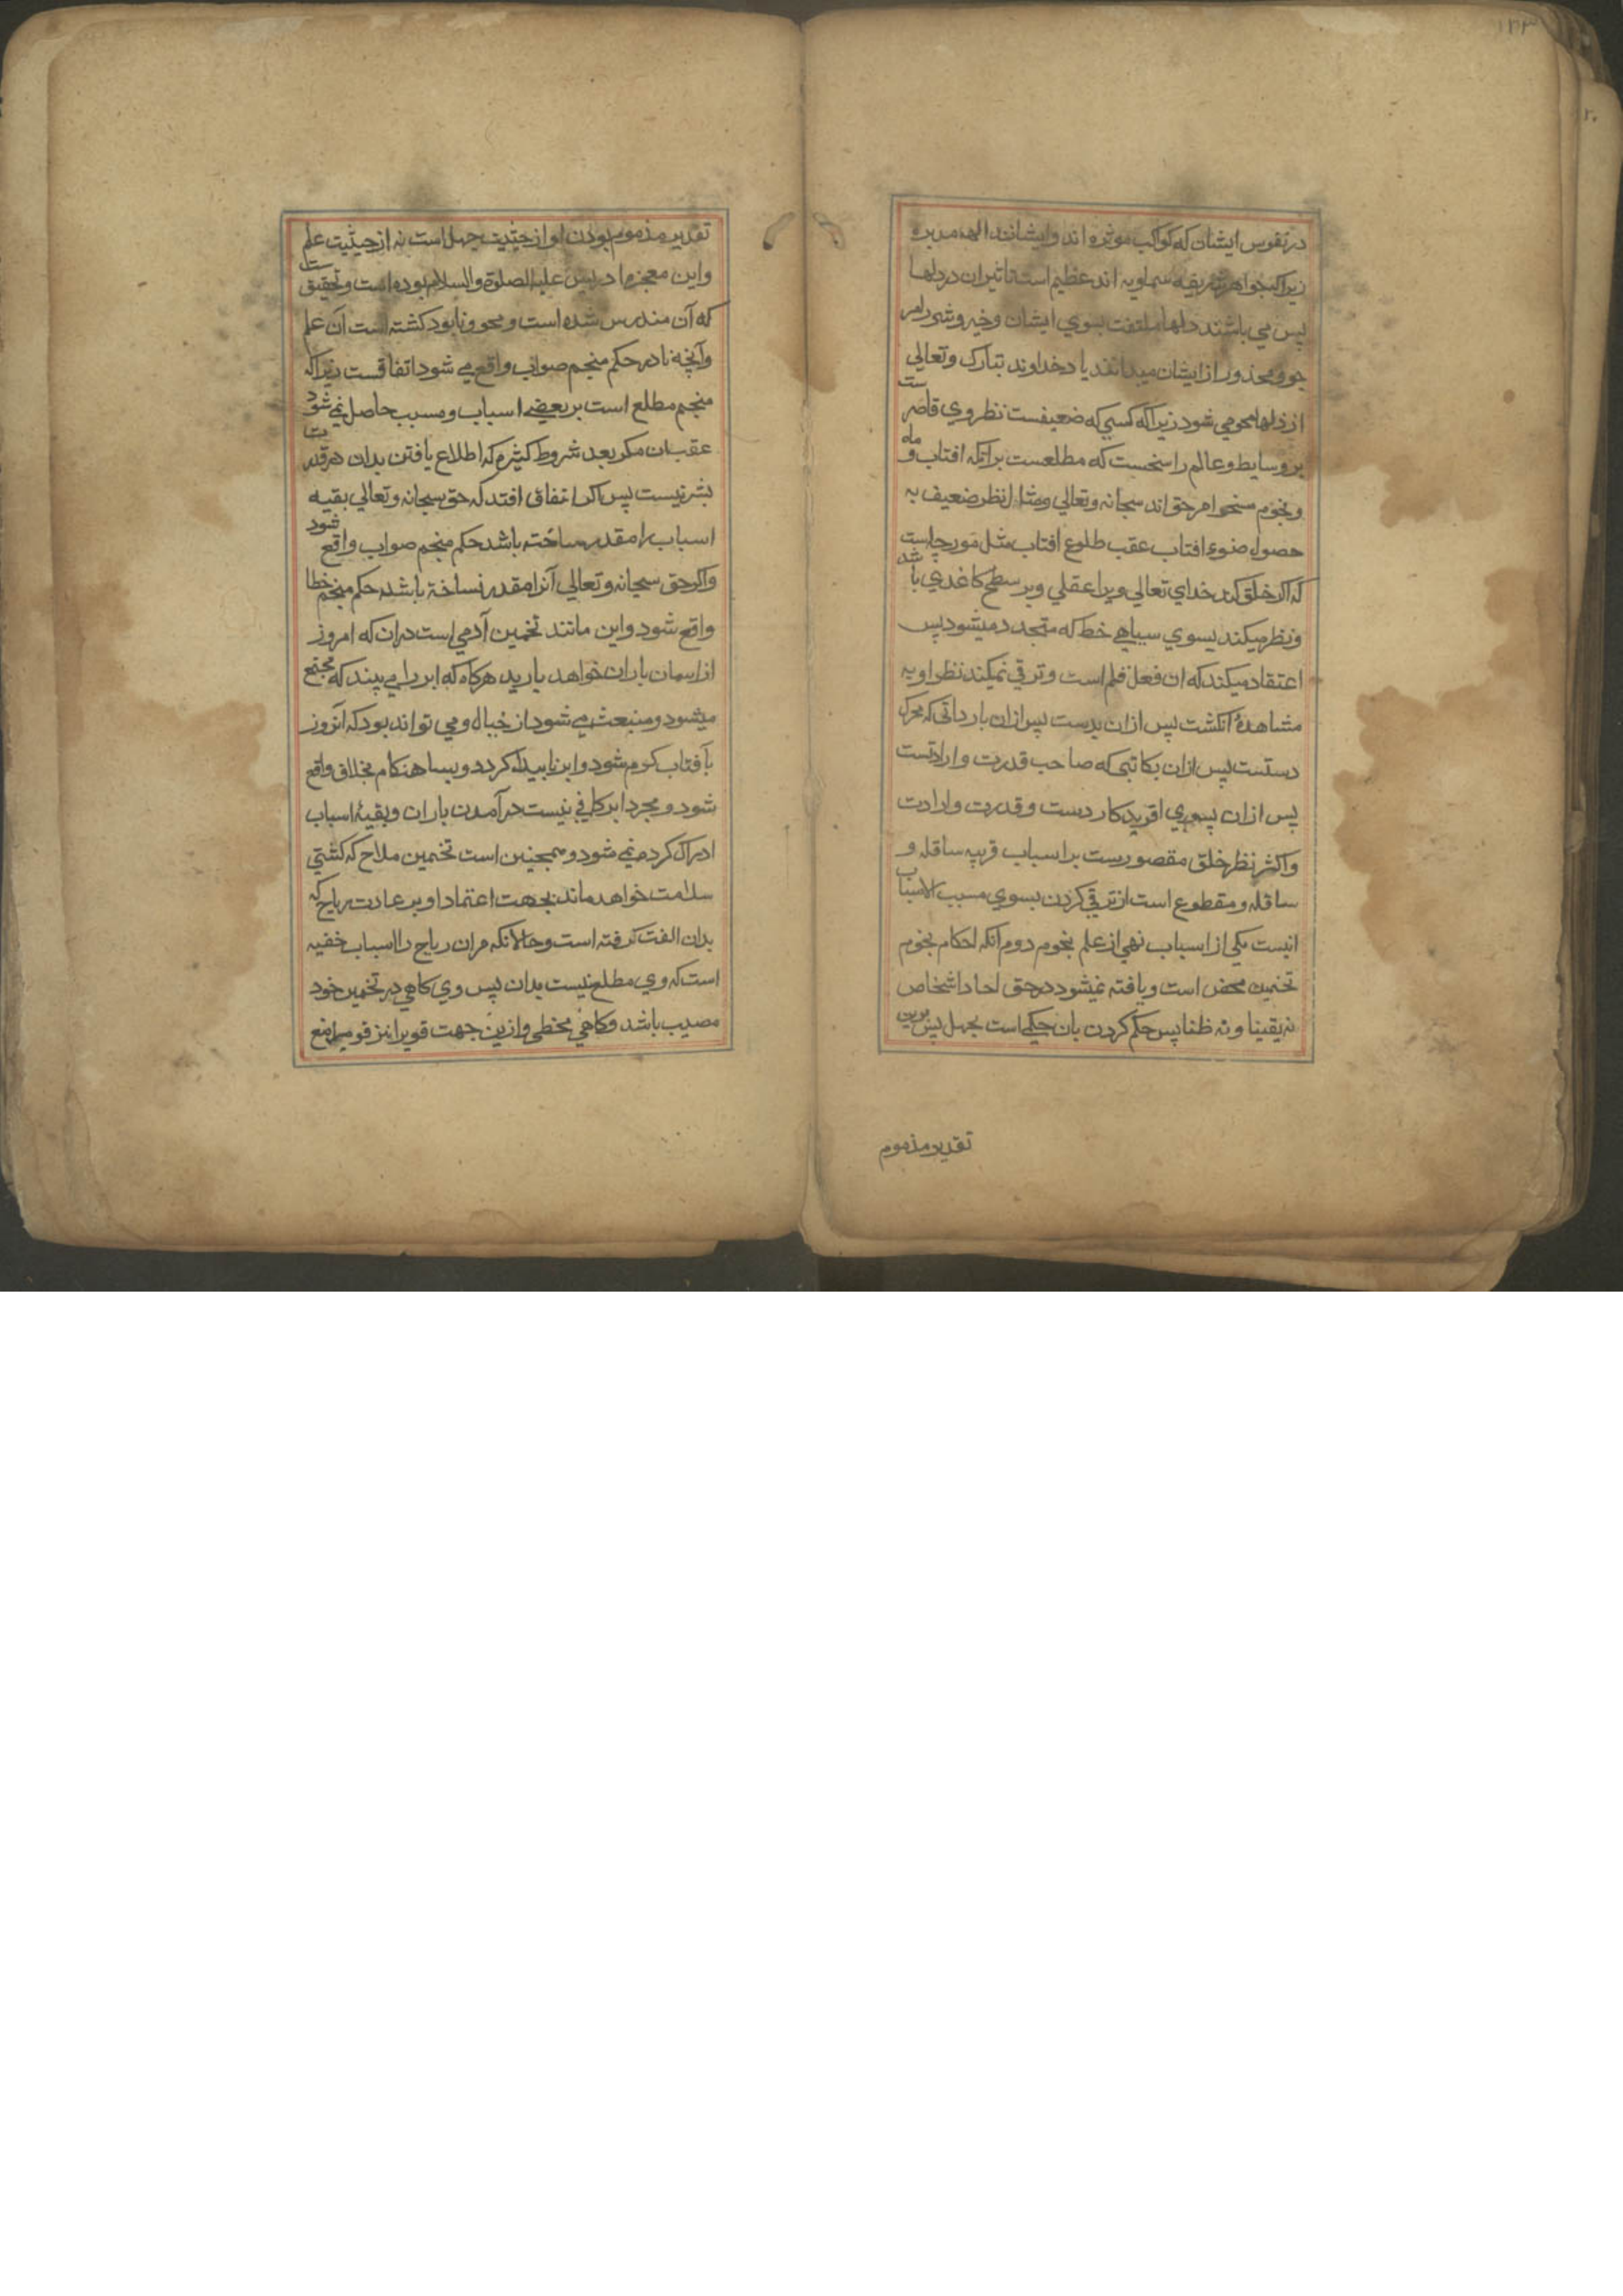 ۱۲۳
در نفوس ایشان که کواکب موثره اند و ایشانند الهه مدبره
زیراکه جواهر شریفه سماویه اند عظیم است تاثیران در دلها
پس می باشند دلها ملتفت بسوي ایشان وخیر و شر را مر
جو و محذور از ایشان میدانند یاد خداوند تبارک وتعالي
از دلها محو مي شود زیراکه کسي که ضعیفست نظر وي قاصر ست
بر وسایط و عالم راسخست که مطلعست برآنکه افتاب و ماه
ونجوم مسخر امر حق اند سبحانه وتعالي ومثل نظر ضعیف به
حصول ضوء افتاب عقب طلوع افتاب مثل مورچه است
که اکر خلق کند خداي تعالي ویرا عقلي وبر سطح کاغدي با شد
ونظر میکند بسوي سیاهي خط که متجدد میشود پس
اعتقاد میکند که ان فعل قلم است وترقي نمیکند نظر او به
مشاهدهٔ انکشت پس ازان بدست پس ازان بارداتي که محرک
دستست پس ازان بکاتبي که صاحب قدرت وارادتست
پس ازان بسوي افریدکار دست وقدرت وارادت
واکثر نظر خلق مقصورست بر اسباب قریبه سافله و
سافله ومقطوع است از ترقي کردن بسوي مسبب الاسباب
اینست یکي از اسباب نهي از علم نجوم دوم آنکه احکام نجوم
تخمین محض است ویافته نمیشود در حق احاد اشخاص
نه یقینا ونه ظنا پس حکم کردن بان حکمي است بجهل پس برین
تقدیر مذموم
تقدیر مذموم بودن او از حیثیت جهل است نه از حیثیت علم
واین معجزه ادریس علیه الصلوة والسلام بوده است وتحقیق ست
که آن مندرس شده است ومحو ونابود کشته است آن علم
وآنچه نادر حکم منجم صواب واقع مي شود اتفاقست زیراکه
منجم مطلع است بر بعضي اسباب ومسبب حاصل نمي شود
عقب ان مکر بعد شروط کثیره که اطلاع یافتن بدان در قدرت
بشر نیست پس اکر اتفاق افتد که حق سبحانه وتعالي بقیه
اسباب را مقدر ساخته باشد حکم منجم صواب واقع شود
واکر حق سبحانه وتعالي آنرا مقدر نساخة باشد حکم منجم خطا
واقع شود واین مانند تخمین آدمي است دران که امروز
از اسمان باران خواهد بارید هرکاه که ابر را مي بیند که مجتمع
میشود ومنبعث مي شود از جبال ومي تواند بود که آنروز
بآفتاب کرم شود وابر ناپیدا کردد وبسا هنکام بخلاف واقع
شود ومجرد ابر کافي نیست در آمدن باران وبقیهٔ اسباب
ادراک کرده نمي شود وهمچنین است تخمین ملاح که کشتي
سلامت خواهد ماند بجهت اعتماد او بر عادت ریاح که
بدان الفت کرفته است وحالانکه مران ریاح را اسباب خفیه
است که وي مطلع نیست بدان پس وي کاهي در تخمین خود
مصیب باشد وکاهي مخطي وازین جهت قویرا نیز